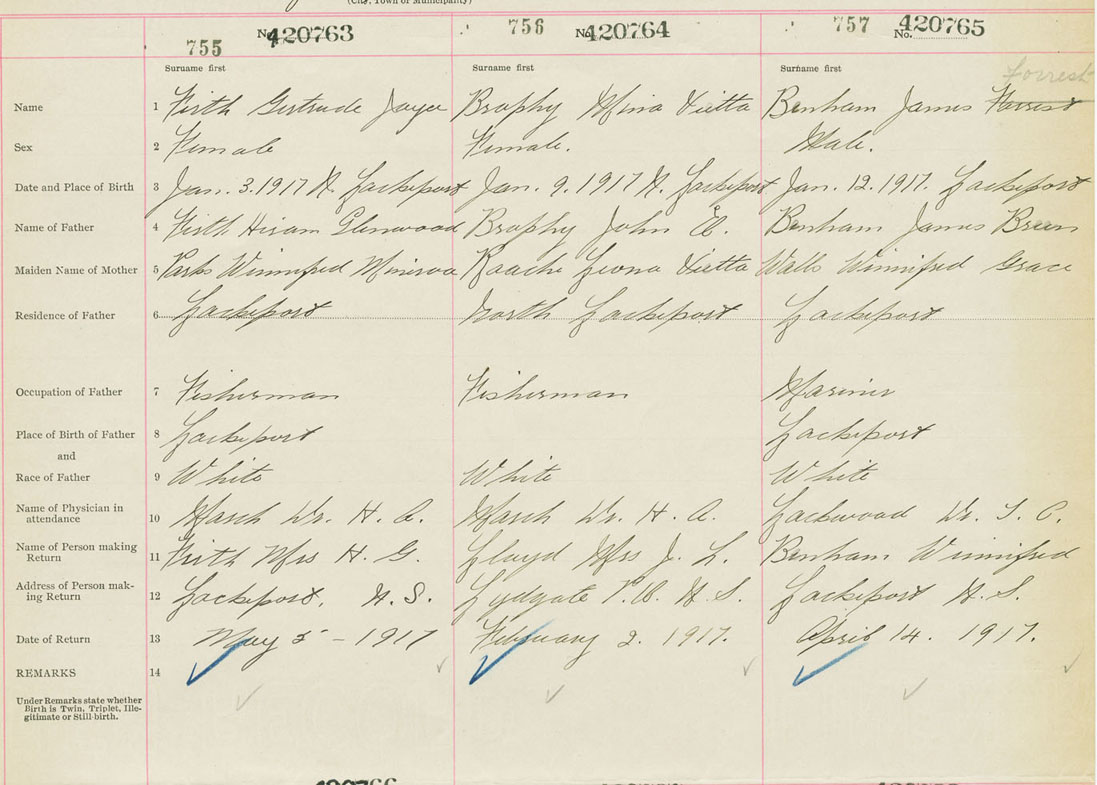 (City, Town or Municipality)
755 No. 420763 756 No. 420764 757 No. 420765
Surname first Surname first Surname first Forrest
Name 1 Firth Gertrude Joyce Brophy Mina Vietta Benham James Forrest
Sex 2 Female Female. Male.
Date and Place of Birth 3 Jan. 3. 1917 N. Lockeport Jan. 9. 1917 N. Lockeport Jan. 12. 1917. Lockeport
Name of Father 4 Firth Hiram Glenwood Brophy John E. Benham James Breen
Maiden Name of Mother 5 Parks Winnifred Minerva Roache Leona Vietta Walls Winnifred Grace
Residence of Father 6 Lockeport North Lockeport Lockeport
Occupation of Father 7 Fisherman Fisherman Mariner
Place of Birth of Father 8 Lockeport Lockeport
and
Race of Father 9 White White White
Name of Physician in
attendance 10 March Dr. H. A. March Dr. H. A. Lockwood Dr. T. C.
Name of Person making
Return 11 Firth Mrs H. G. Lloyd Mrs J. L. Benham Winnifred
Address of Person mak-
ing Return 12 Lockeport, N. S. Lydgate P.O. N. S. Lockeport N. S.
Date of Return 13 May 5 - 1917 February 2. 1917. April 14. 1917.
REMARKS 14
Under Remarks state whether
Birth is Twin, Triplet, Ille-
gitimate or Still-birth.
420766